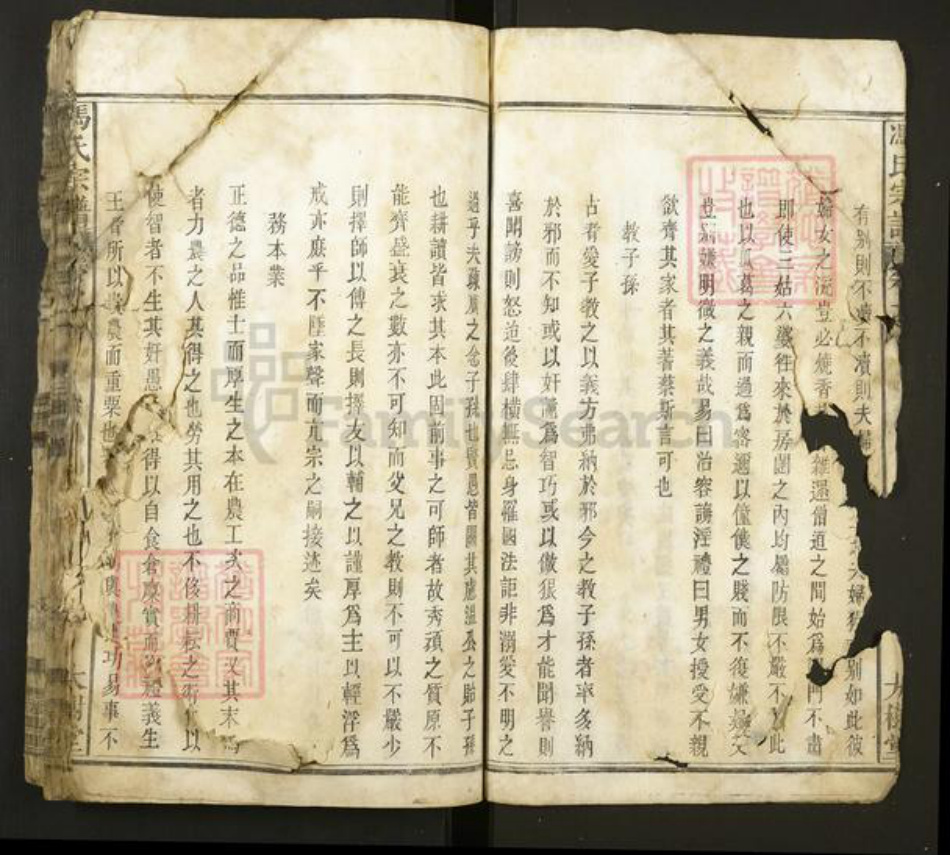 馮氏宗譜
有别則不瀆不瀆則夫婦 夫婦 别如此彼
婦女之流豈必燒香 雜遝僧道之間始爲 門不肅
即使三姑六婆往來於房闥之内均屬防限不嚴不 此
也以瓜葛之親而過爲密邇以僮僕之賤而不復嫌疑又
豈别嫌明微之義哉易曰冶容誨淫禮曰男女授受不親
欲齊其家者其蓍蔡斯言可也
教子孫
古者愛子教之以義方弗納於邪今之教子孫者率多納
於邪而不知或以奸譎爲智巧或以儌狠爲才能聞譽則
喜聞謗則怒迨後肆横無忌身罹國法詎非溺愛不明之
過乎夫 之念子孫也賢愚皆關其慮温公之貽子孫
也耕讀皆求其本此固前事之可師者故秀頑之質原不
能齊盛衰之數亦不可知而父兄之教則不可以不嚴少
則擇師以傅之長則擇友以輔之以謹厚爲主以輕浮爲
戒亦庶乎不墜家聲而亢宗之嗣接迹矣
務本業
正德之品惟士而厚生之本在農工次之商賈又其末焉
者力農之人其得之也勞其用之也不侈耕耘之術 以
使智者不生其奸愚 得以自食倉廩實而 禮義生
王者所以貴農而重粟也 與 功易事不
馮氏宗譜
大樹堂
FamilySearch